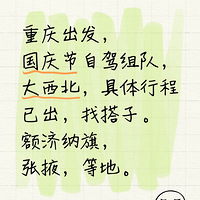 重庆出发，
国庆节自驾组队，
大西北，具体行程
已出，找搭子。
额济纳旗，
张掖，等地。